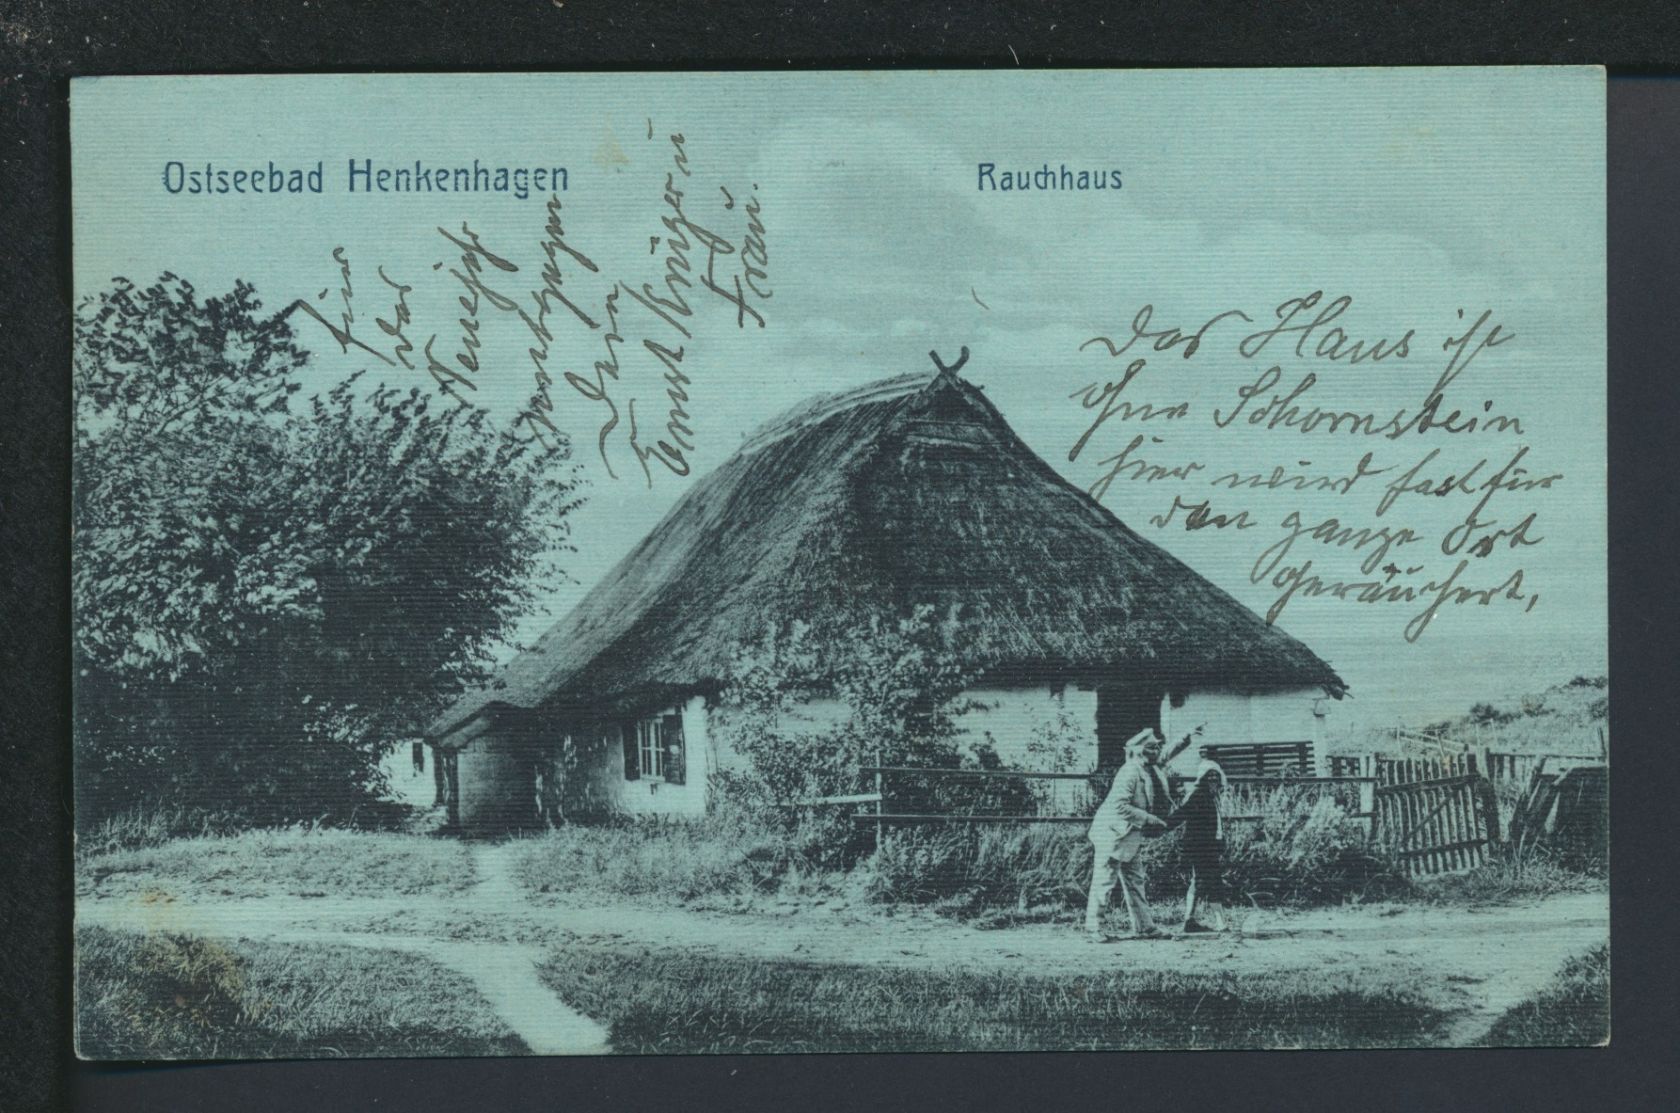 Ostseebad Henkenhagen
Rauchhaus
Für
das
Neuejahr
Dein
Ernst Krüger u
Frau.
Das Haus ist
ohne Schornstein
hier wird fast für
den ganze Ort
geräuchert,